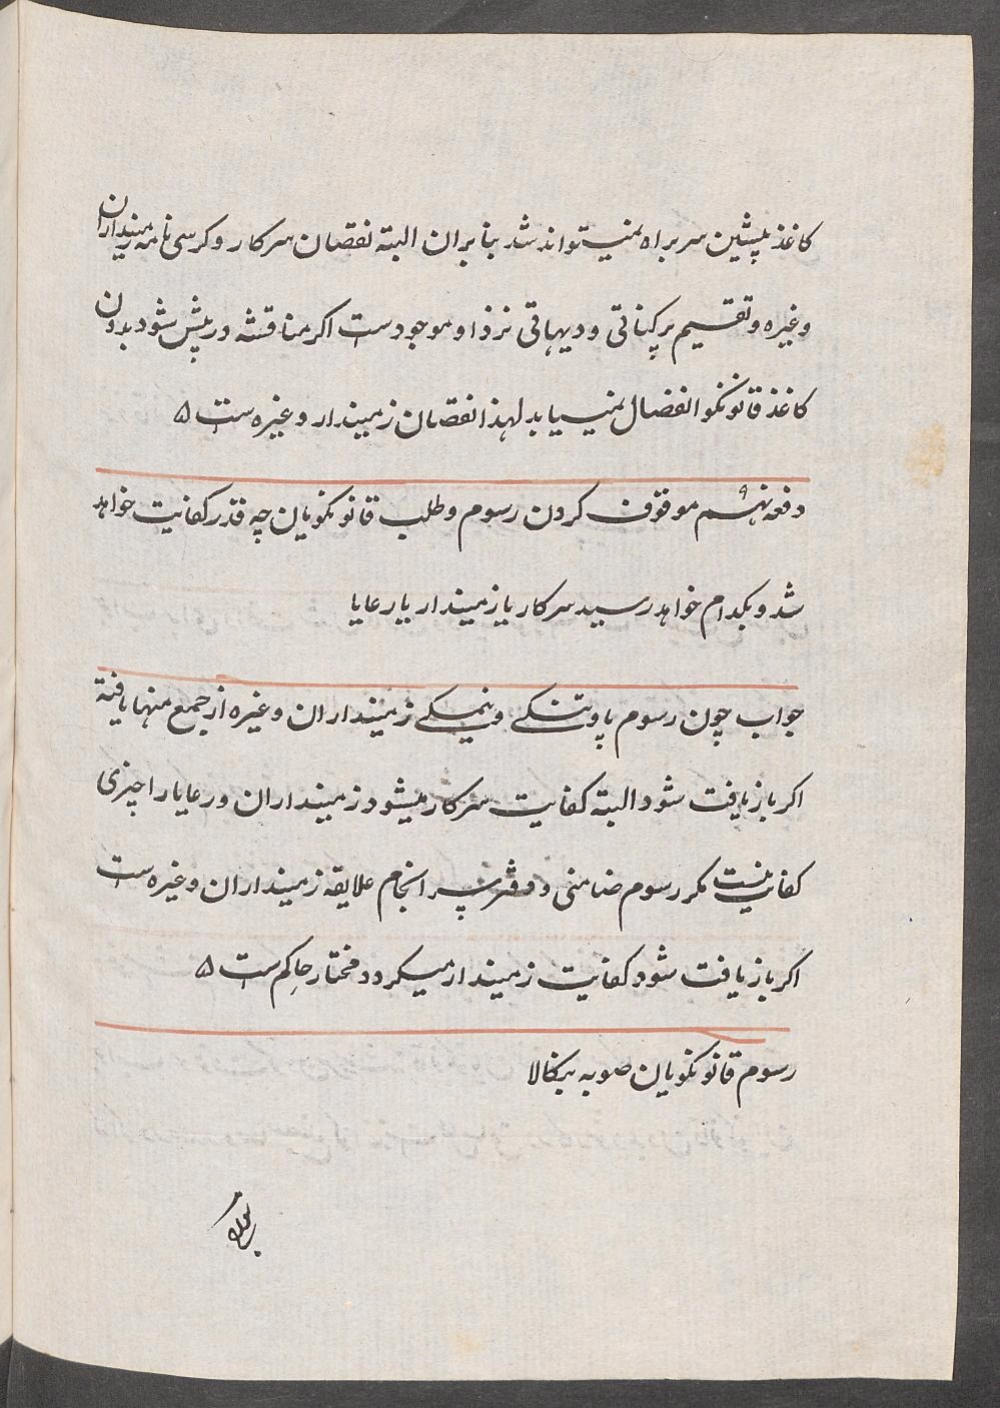 کاغذ پیشین سربراه نمیتواند شد بنابران البته نقصان سرکار و کرسی نامه زمینداران
وغیره وتقسیم پرکناتی ودیهاتی نزد او موجودست اکر مناقشه درپیش شود بدون
کاغذ قانونکو انفصال نمییابد لهذا نقصان زمیندار وغیره ست ۵
دفعه نهم ۹ موقوف کردن رسوم وطلب قانونکویان چه قدر کفایت خواهد
شد وبکدام خواهد رسید سرکار یا زمیندار یا رعایا
جواب چون رسوم زمینداران وغیره از جمع منها یافته
اکر بازیافت شود البته کفایت سرکار میشود زمینداران ورعایا را چیزی
کفایت نیست مکر رسوم ضامنی و سرانجام علایقه زمینداران وغیره ست
اکر بازیافت شود کفایت زمیندار میکردد مختار حاکم ست ۵
رسوم قانونکویان صوبه بنکالا